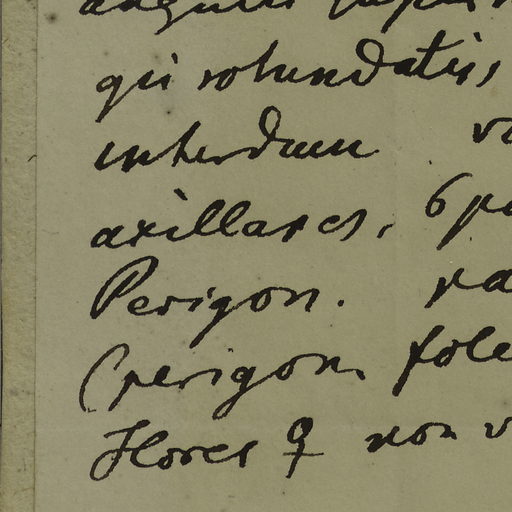 angulis
qui rotundatis,
interdum
axillares, 6
Perigon.
(perigon.
Flores ♀ non